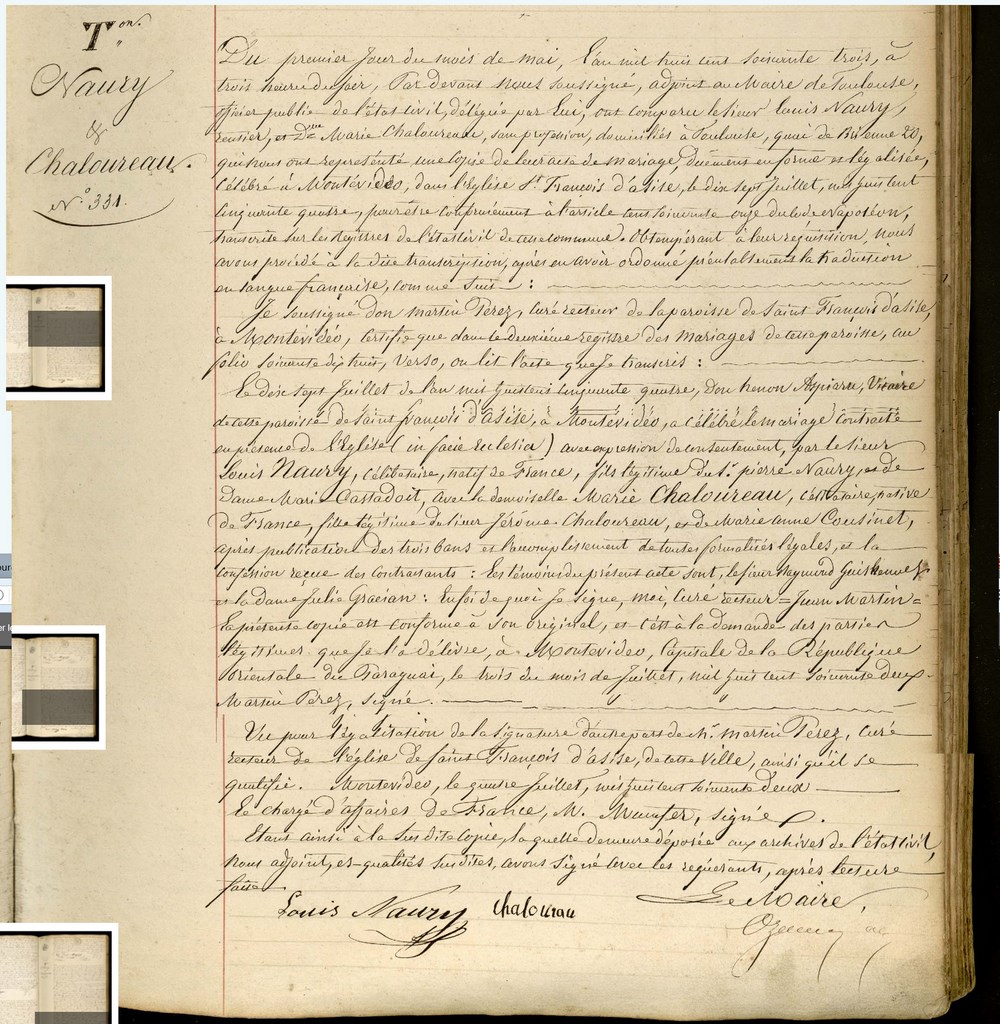 Ton.
Naury
&
Chaloureau.
No. 331.
Du premier jour du mois de mai, l'an mil huit cent soixante trois, à
trois heures du soir, Par devant nous soussigné, adjoint au Maire de Toulouse,
officier public de l'état civil, délégué par Lui, ont comparu le sieur Louis Naury,
rentier, et Dme Marie Chaloureau, sans profession, domiciliés à Toulouse, quai de Brienne 20,
qui nous ont représenté une copie de leur acte de mariage, duement en forme et légalisée,
Célébré à Montévidéo, dans l'Eglise St François d'asise, le dix sept Juillet, mil huit cent
cinquante quatre, pour être conformément à l'article cent soixante onze du Code Napoléon,
transcrite sur les Registres de l'état civil de cette commune. Obtempérant à leur réquisition, Nous
avons procédé à la dite transcription, après en avoir ordonné préalablement la traduction
en langue française, comme suit :
Je soussigné don martin Pérez, curé recteur de la paroisse de Saint François d'asise,
à Montévidéo, certifie que dans le deuxième registre des mariages de cette paroisse, au
folio soixante dix huit, Verso, on lit l'acte que je transcris :
Le dix sept Juillet de l'an mil huit cent cinquante quatre, Don Vicaire
de cette paroisse de Saint françois d'asise, à Montévidéo, a célébré le mariage contracté
en présence de l'Eglise (in facie Ecclesia) avec expression de consentement, par le sieur
Louis Naury, célibataire, natif de France, fils légitime du Sr. pierre Naury, et de
Dame Marie Castadoit, avec la demoiselle Marie Chaloureau, célibataire, native
de France, fille légitime du sieur Jérôme Chaloureau, et de Marie anne Cousinet,
après publication des trois bans et l'accomplissement de toutes formalités légales, et la
confession reçue des contractants : Les témoins du présent acte sont, le sieur Raymond
et la Dame Julie Gracian : En foi de quoi je signe, moi, Curé recteur = Juan Martin =
La présente copie est conforme à son original, et c'est à la demande des parties
légitimes que je l'ai délivré, à Montévidéo, Capitale de la République
orientale du Paraguai, le trois du mois de Juillet, mil huit cent soixante deux.
Martin Pérez, signé.
Vu pour légalisation de la signature d'autre part de M. martin Pérez, curé
recteur de l'église de saint François d'asise, de cette Ville, ainsi qu'il se
qualifie. Montévidéo, le quatre Juillet, mil huit cent soixante deux
Le chargé d'affaires de France, M. signé.
Etant ainsi à la sus dite copie, laquelle demeure déposée aux archives de l'état civil,
Nous adjoint, ès-qualités susdites, avons signé avec les requérants, après lecture
faite
Louis Naury Chaloureau Le Maire,